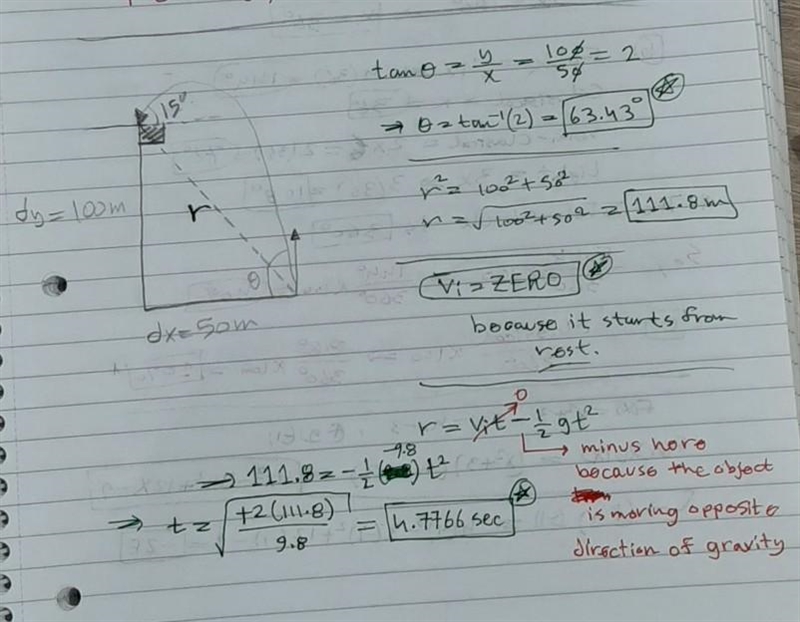 tanθ = y/x = 100/50 = 2
⇒ θ = tan⁻¹(2) = 63.43°
15°
r² = 100² + 50²
r = √100² + 50² = 111.8 m
dy = 100m
r
θ
Vi = ZERO
dx = 50m
because it starts from
rest.
0
r = Vit - 1/2 gt²
minus here
because the object
is moving opposite
direction of gravity
-9.8
⇒ 111.8 = -1/2 ( ) t²
⇒ t = √+2(111.8)/9.8 = 4.7766 sec